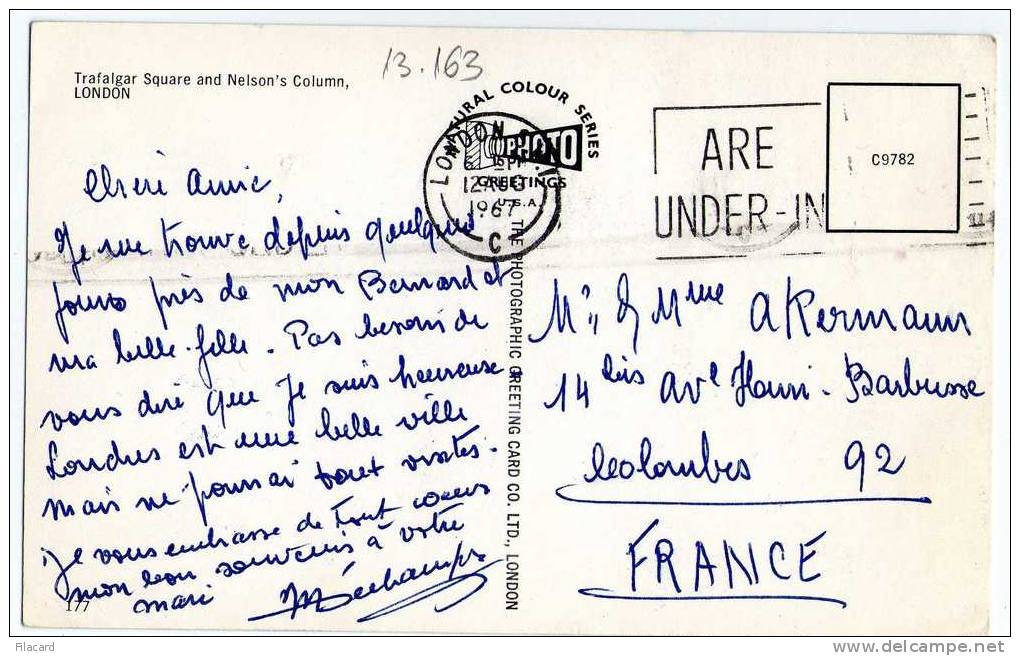 Trafalgar Square and Nelson's Column,
LONDON
13.163
NATURAL COLOUR SERIES
PHOTO
GREETINGS
U.S.A.
LONDON
12 AUG
1967
C
ARE
UNDER-IN
C9782
Chère Annie,
Je me trouve depuis quelques
jours près de mon Bernard et
ma belle-fille. Pas besoin de
vous dire que Je suis heureuse
Londres est une belle ville
mais ne pourrai tout visiter.
Je vous embrasse de tout coeur
mon bon souvenir à votre
mari
MDéchamps
177
THE PHOTOGRAPHIC GREETING CARD CO. LTD., LONDON
Mr & Mme Akermann
14 bis Ave Henri-Barbusse
Colombes 92
FRANCE
Filacard
delcampe.net